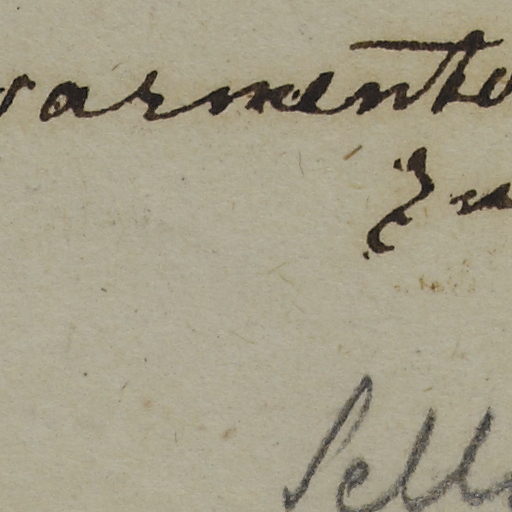 sarmento
Zu
Sell